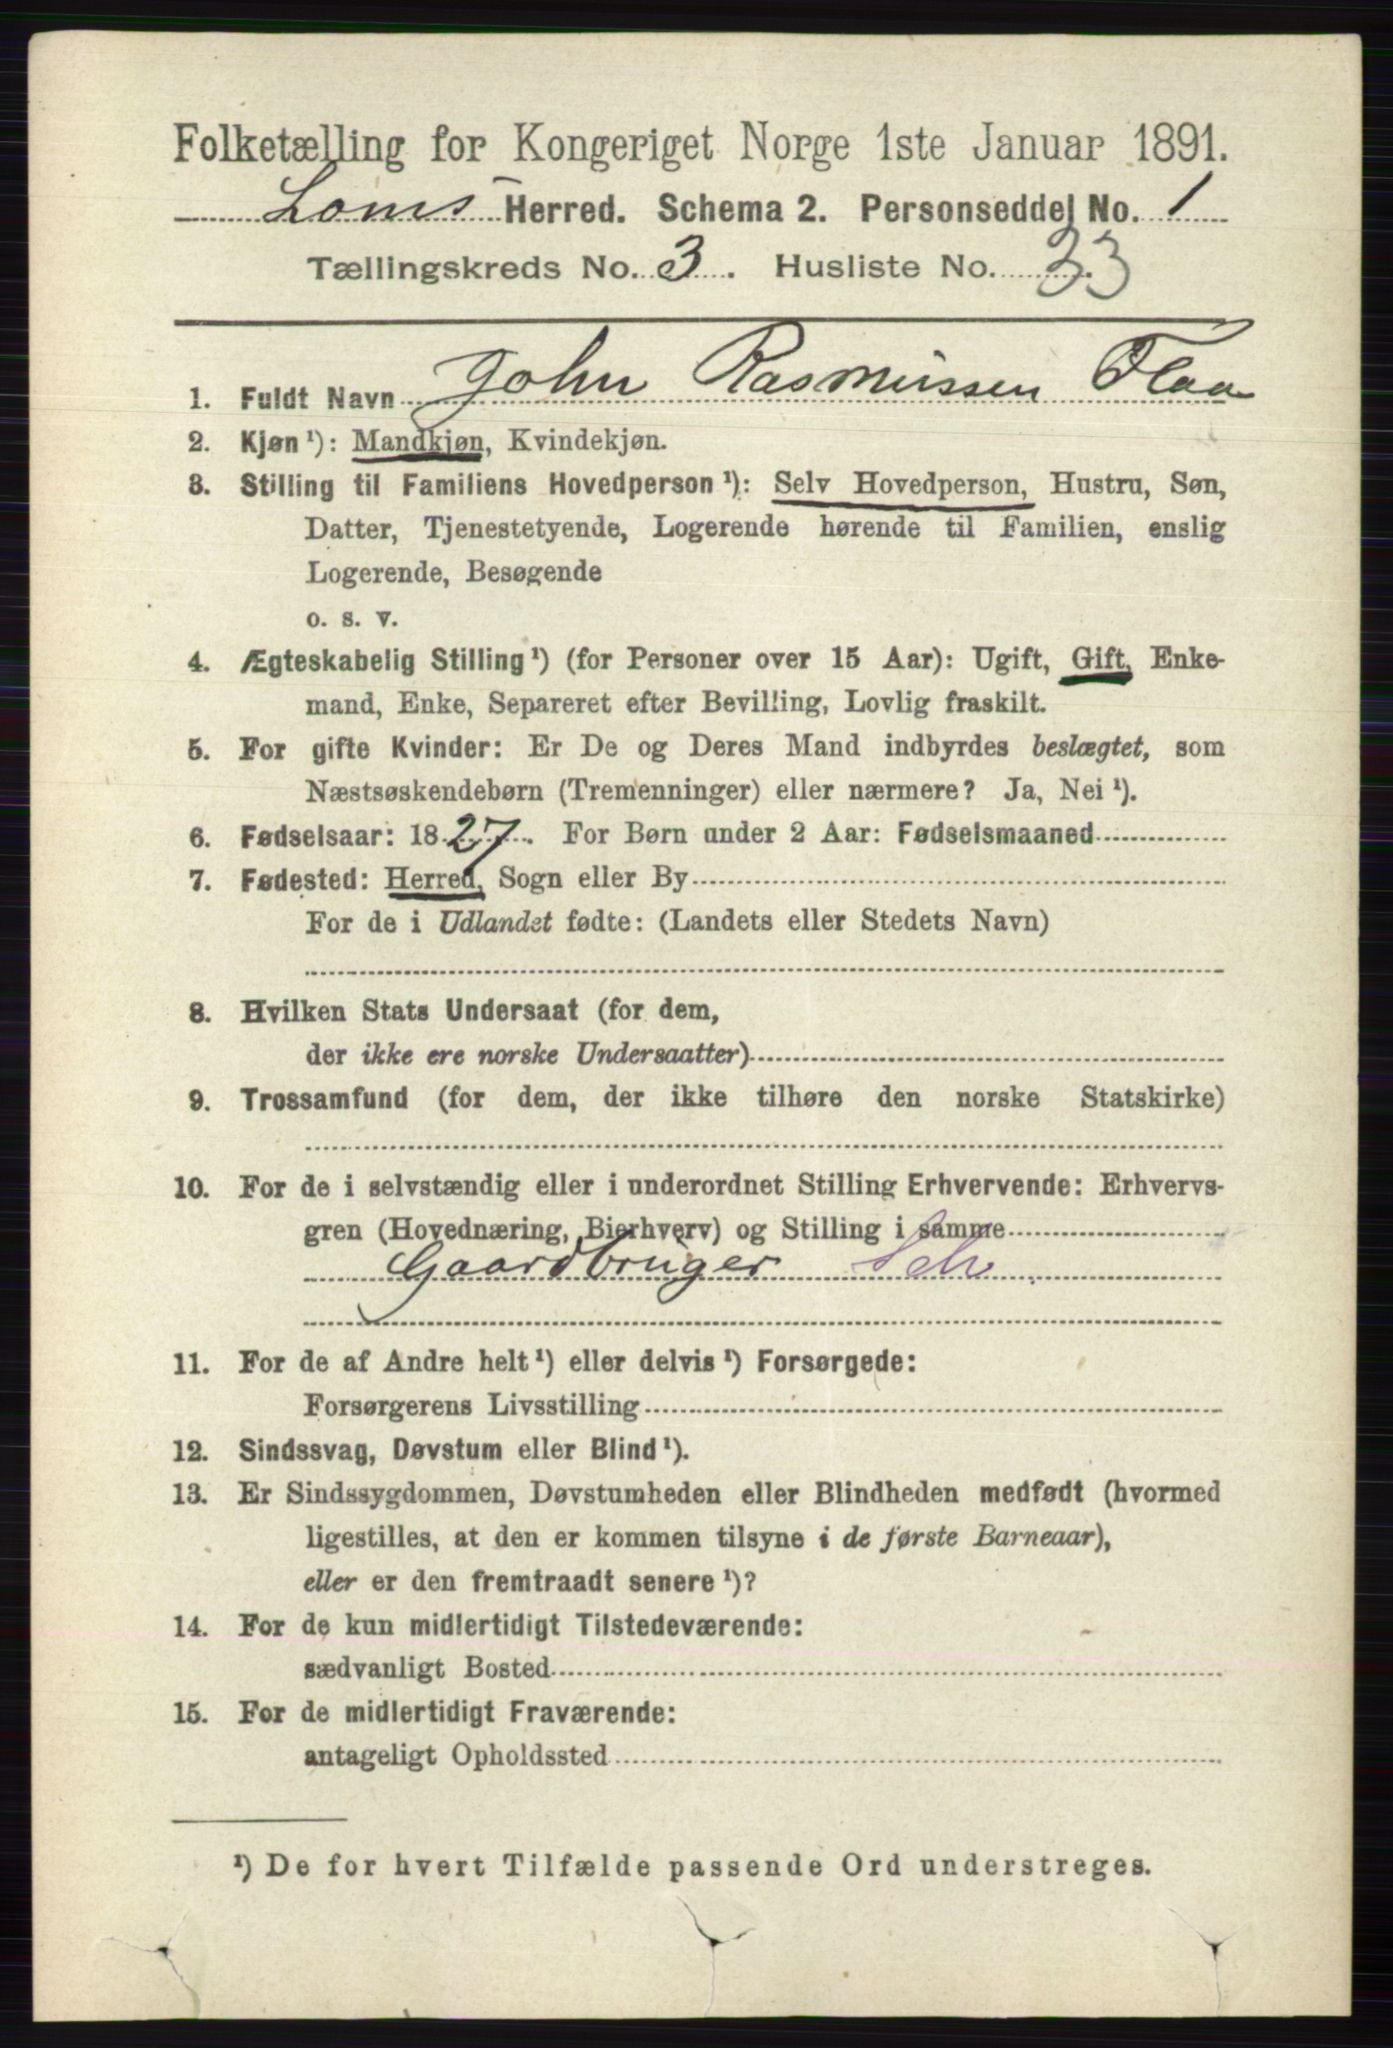 Folketælling for Kongeriget Norge 1ste Januar 1891.
Loms Herred. Schema 2. Personseddel No. 1
Tællingskreds No. 3. Husliste No. 33
1. Fuldt Navn John Rasmussen Flaa
2. Kjøn¹): Mandkjøn, Kvindekjøn.
3. Stilling til Familiens Hovedperson¹): Selv Hovedperson, Hustru, Søn,
Datter, Tjenestetyende, Logerende hørende til Familien, enslig
Logerende, Besøgende
o. s. v.
4. Ægteskabelig Stilling¹) (for Personer over 15 Aar): Ugift, Gift, Enke-
mand, Enke, Separeret efter Bevilling, Lovlig fraskilt.
5. For gifte Kvinder: Er De og Deres Mand indbyrdes beslægtet, som
Næstsøskendebørn (Tremenninger) eller nærmere? Ja, Nei¹).
6. Fødselsaar: 1827. For Børn under 2 Aar: Fødselsmaaned
7. Fødested: Herred, Sogn eller By
For de i Udlandet fødte: (Landets eller Stedets Navn)
8. Hvilken Stats Undersaat (for dem,
der ikke ere norske Undersaatter)
9. Trossamfund (for dem, der ikke tilhøre den norske Statskirke)
10. For de i selvstændig eller i underordnet Stilling Erhvervende: Erhvervs-
gren (Hovednæring, Bierhverv) og Stilling i samme
Gaardbruger Selv
11. For de af Andre helt¹) eller delvis¹) Forsørgede:
Forsørgerens Livsstilling
12. Sindssvag, Døvstum eller Blind¹).
13. Er Sindssygdommen, Døvstumheden eller Blindheden medfødt (hvormed
ligestilles, at den er kommen tilsyne i de første Barneaar),
eller er den fremtraadt senere¹)?
14. For de kun midlertidigt Tilstedeværende:
sædvanligt Bosted
15. For de midlertidigt Fraværende:
antageligt Opholdssted
¹) De for hvert Tilfælde passende Ord understreges.